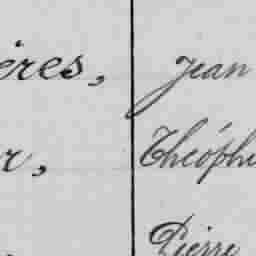 ères, Jean
r, Théophi
Pierre